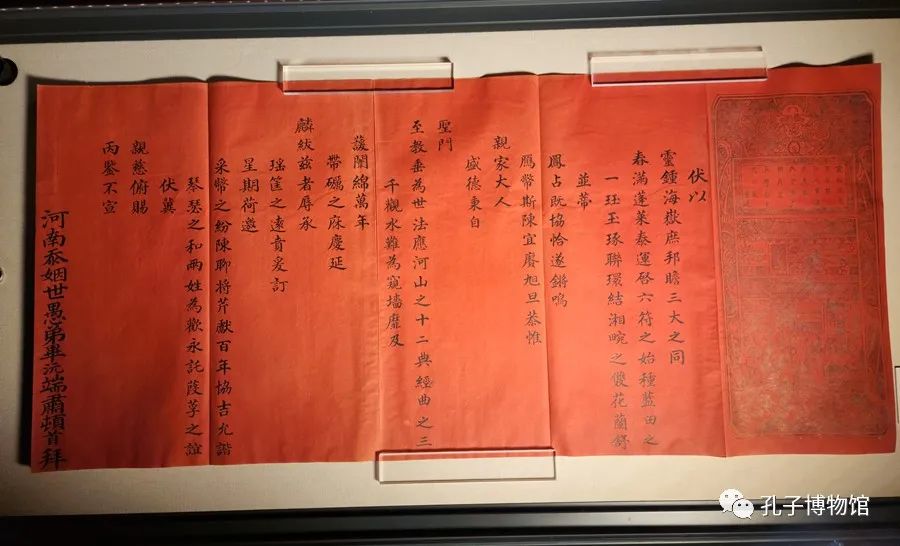 伏以
靈鍾海嶽庶邦瞻三大之同
春滿蓬萊泰運啓六符之始種藍田之
一珏玉琢聯環結湘畹之儍花蘭舒
並蒂
鳳占既協恰遂鏘鳴
鴈幣斯陳宜賡旭旦恭惟
親家大人
盛德東自
聖門
至教垂為世法應河山之十二典經曲之三
千觀水難為窺墻靡及
蔭闈綿萬年
帶礪之庥慶延
麟紱茲者辱承
瑶筐之遠賁爰訂
星期荷邀
采幣之紛陳聊將芹獻百年協吉允諧
琴瑟之和兩姓為歡永託葭莩之誼
伏冀
親慈俯賜
丙鋻不宣
河南忝姻世愚弟畢沅端肅頓首拜
孔子博物馆